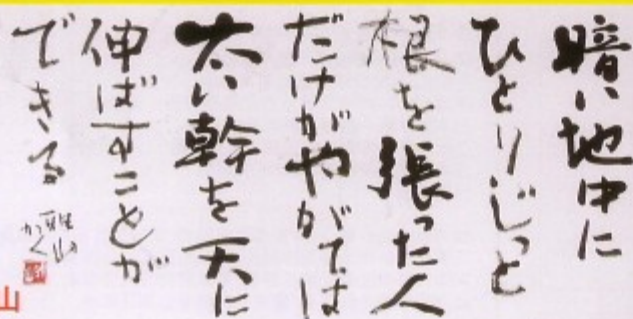 暗い地中に
ひとりじっと
根を張った人
だけがやがては
太い幹を天に
伸ばすことが
できる
雅山
かく
山